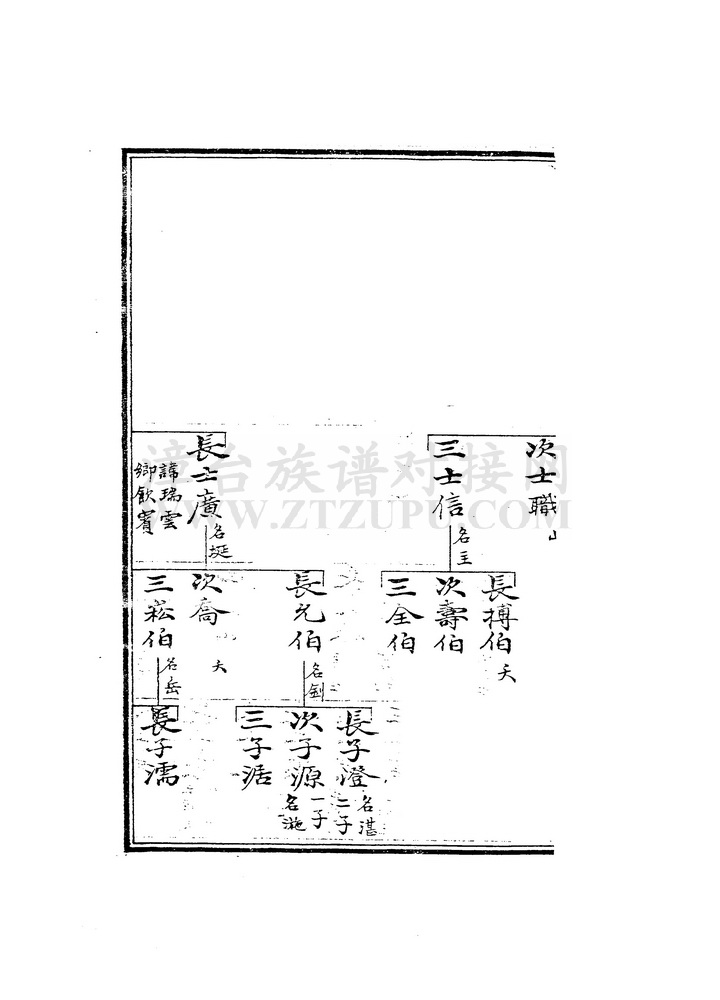 次士職
三士信
名主
長士廣
名埏
諱瑞雲
鄉飲賓
長摶伯
夭
次壽伯
三全伯
長允伯
名釗
次喬
夭
三崧伯
名岳
長子澄
名湛
二子
次子源
一子
名滟
三子湉
長子濡
漳台族谱对接网
WWW.ZTZUPU.COM